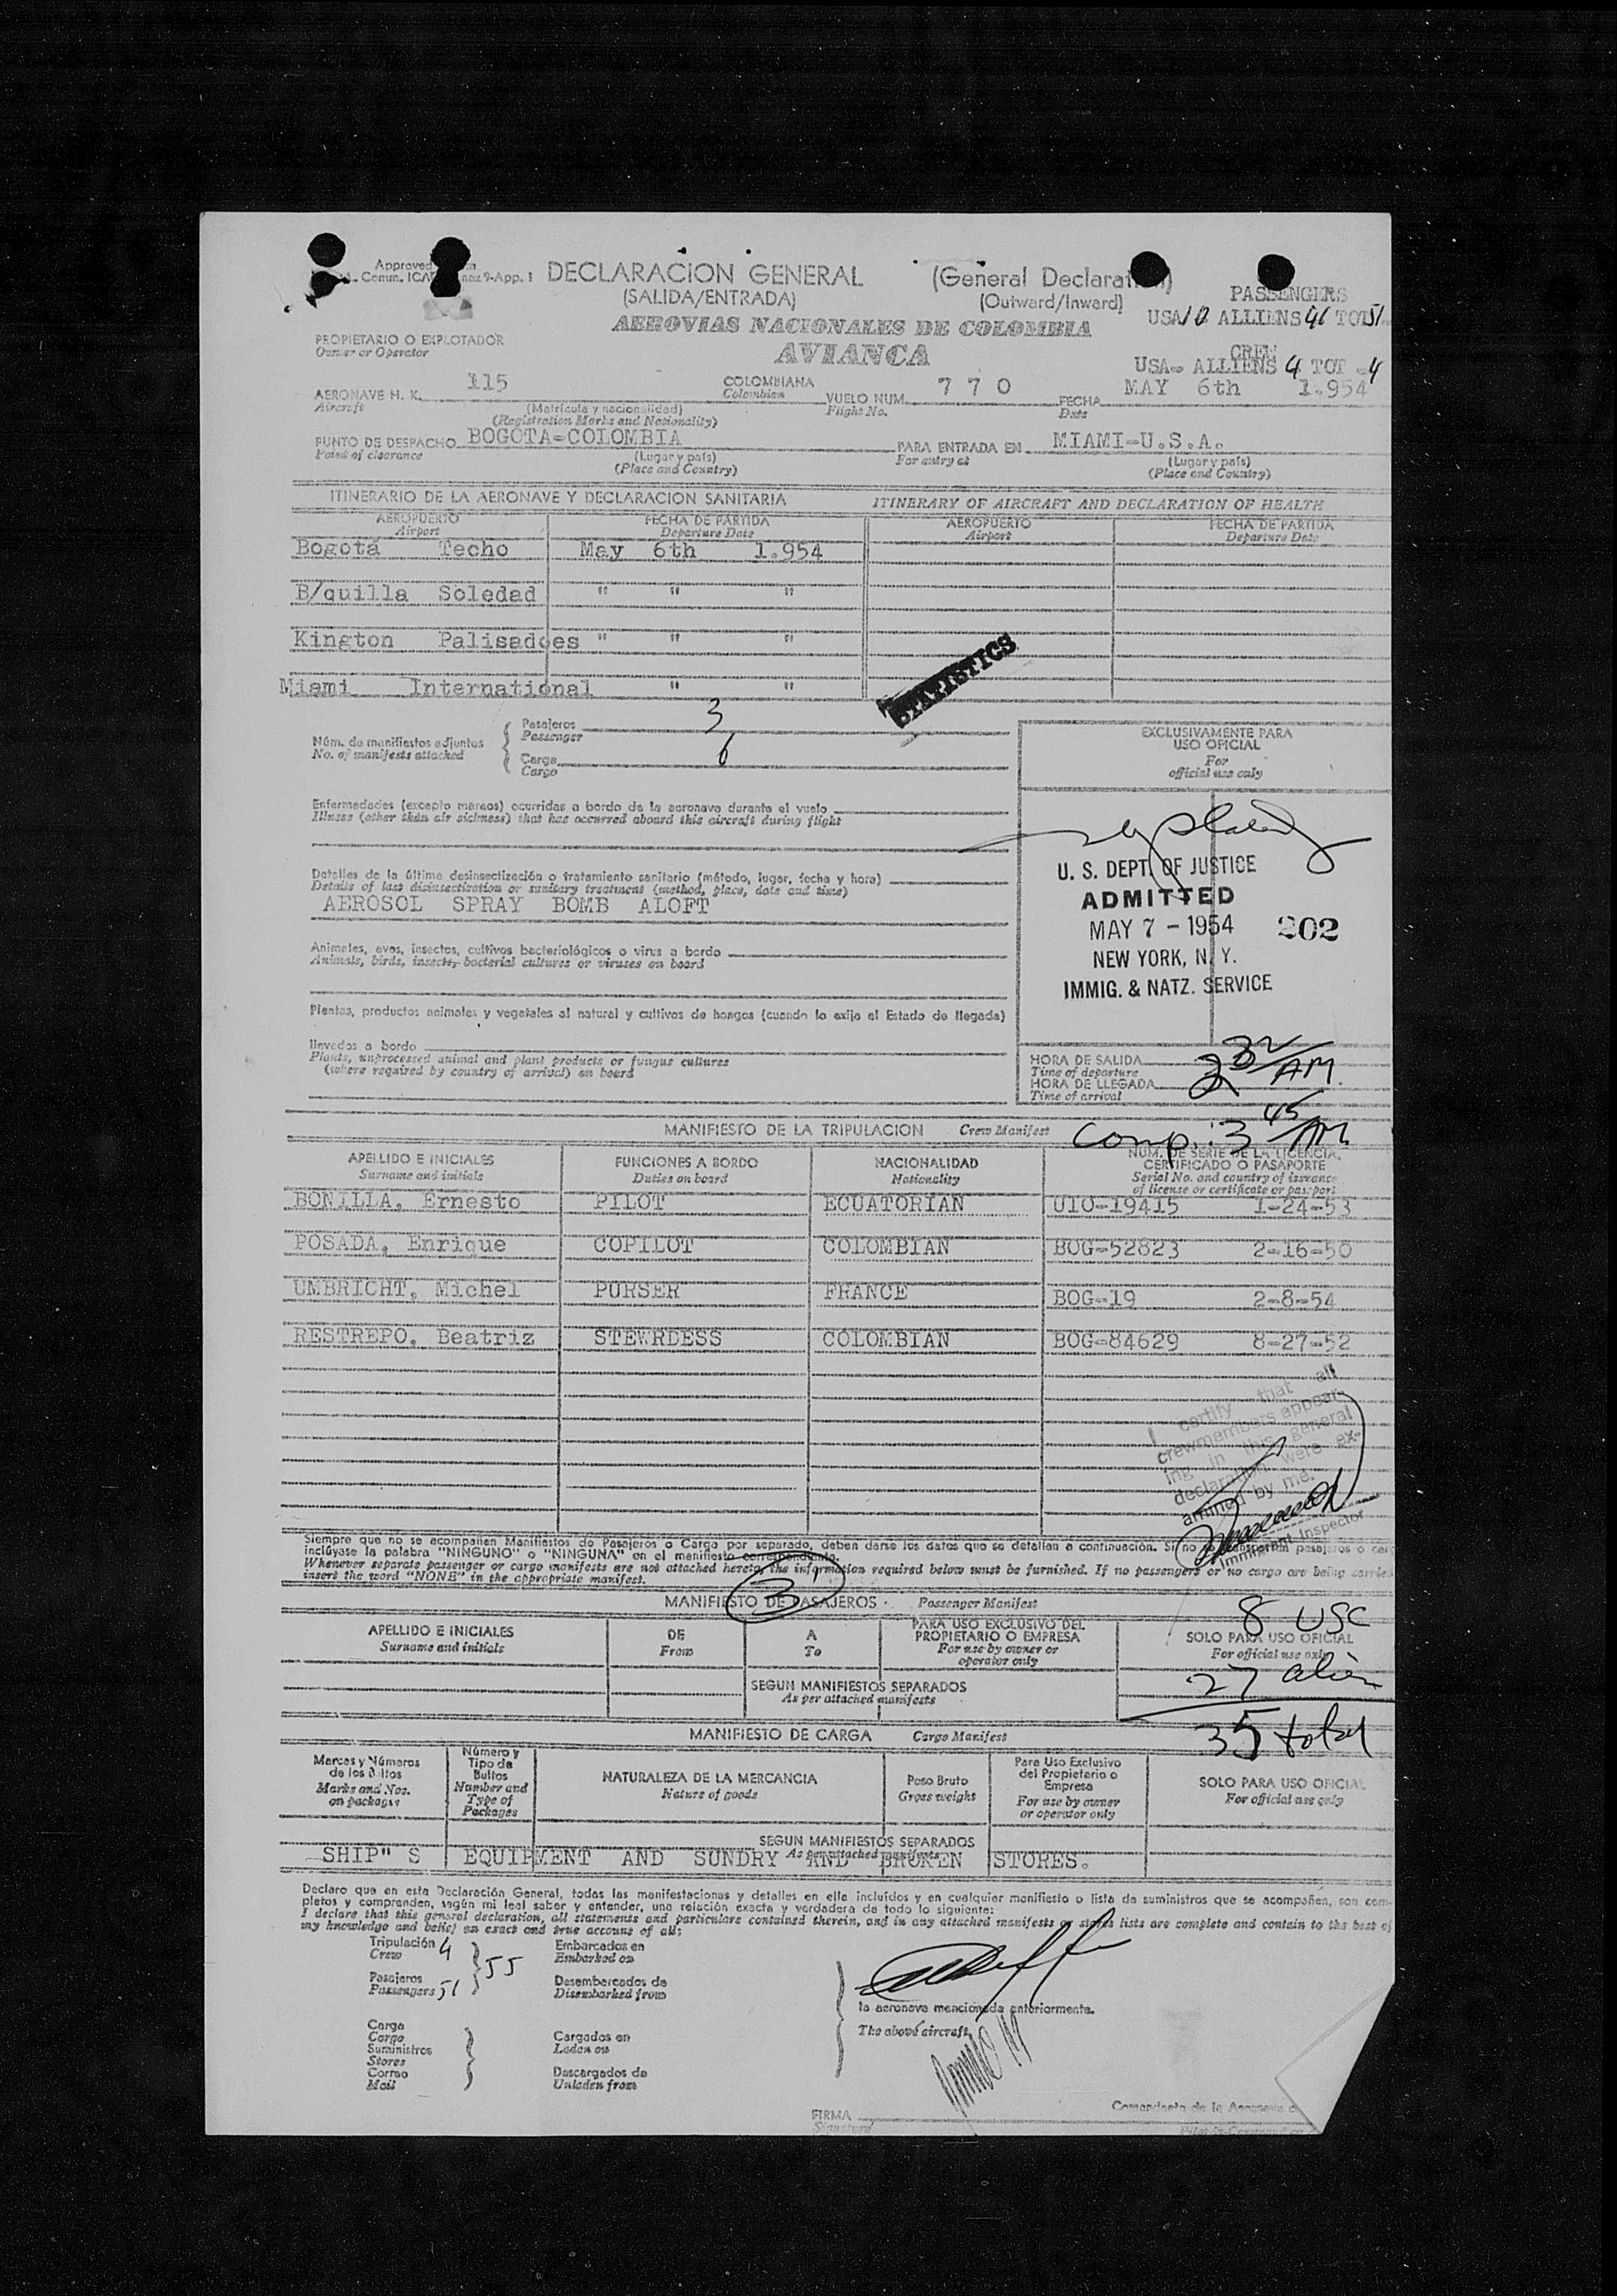 DECLARACION GENERAL (General Declaration)
(SALIDA/ENTRADA) (Outward/Inward)
PASSENGERS
USA 10 ALLIENS 41 TOT 51
AEROVIAS NACIONALES DE COLOMBIA
AVIANCA
CREW
USA- ALLIENS 4 TOT -4
PROPIETARIO O EXPLOTADOR
Owner or Operator
AERONAVE H. K. 115 COLOMBIANA VUELO NUM. 7 7 0 FECHA MAY 6th 1.954
Aircraft Colombian Flight No. Date
(Matrícula y nacionalidad)
(Registration Marks and Nationality)
PUNTO DE DESPACHO BOGOTA-COLOMBIA PARA ENTRADA EN MIAMI-U.S.A.
Point of clearance (Lugar y país) For entry at (Lugar y país)
(Place and Country) (Place and Country)
ITINERARIO DE LA AERONAVE Y DECLARACION SANITARIA ITINERARY OF AIRCRAFT AND DECLARATION OF HEALTH
AEROPUERTO FECHA DE PARTIDA AEROPUERTO FECHA DE PARTIDA
Airport Departure Date Airport Departure Date
Bogotá Techo May 6th 1.954
B/quilla Soledad " " "
Kington Palisadoes " " "
Miami International " "
STATISTICS
Núm. de manifiestos adjuntos
No. of manifests attached
Pasajeros 3
Passenger
Carga 6
Cargo
EXCLUSIVAMENTE PARA
USO OFICIAL
For
official use only
Enfermedades (excepto mareos) ocurridas a bordo de la aeronave durante el vuelo
Illness (other than air sickness) that has occurred aboard this aircraft during flight
Detalles de la última desinsectización o tratamiento sanitario (método, lugar, fecha y hora)
Details of last disinsectization or sanitary treatment (method, place, date and time)
AEROSOL SPRAY BOMB ALOFT
U. S. DEPT. OF JUSTICE
ADMITTED
MAY 7 - 1954 202
NEW YORK, N. Y.
IMMIG. & NATZ. SERVICE
Animales, aves, insectos, cultivos bacteriológicos o virus a bordo
Animals, birds, insects, bacterial cultures or viruses on board
Plantas, productos animales y vegetales al natural y cultivos de hongos (cuando lo exija el Estado de llegada)
llevados a bordo
Plants, unprocessed animal and plant products or fungus cultures
(where required by country of arrival) on board
HORA DE SALIDA
Time of departure
HORA DE LLEGADA
Time of arrival
AM
MANIFIESTO DE LA TRIPULACION Crew Manifest
Comp.: 3 45 AM
APELLIDO E INICIALES FUNCIONES A BORDO NACIONALIDAD NUM. DE SERIE DE LA LICENCIA,
CERTIFICADO O PASAPORTE
Surname and initials Duties on board Nationality Serial No. and country of issuance
of license or certificate or passport
BONILLA, Ernesto PILOT ECUATORIAN UIO-19415 1-24-53
POSADA, Enrique COPILOT COLOMBIAN BOG-52823 2-16-50
UMBRICHT, Michel PURSER FRANCE BOG-19 2-8-54
RESTREPO, Beatriz STEWRDESS COLOMBIAN BOG-84629 8-27-52
I certify that all
crewmembers appear-
ing in this general
declaration were ex-
amined by me.
Immigrant Inspector
Siempre que no se acompañen Manifiestos de Pasajeros o Carga por separado, deben darse los datos que se detallan a continuación. Si no se transportan pasajeros o carga
inclúyase la palabra "NINGUNO" o "NINGUNA" en el manifiesto correspondiente.
Whenever separate passenger or cargo manifests are not attached hereto, the information required below must be furnished. If no passengers or no cargo are being carried
insert the word "NONE" in the appropriate manifest.
3
MANIFIESTO DE PASAJEROS Passenger Manifest
8 USC
APELLIDO E INICIALES DE A PARA USO EXCLUSIVO DEL PROPIETARIO O EMPRESA SOLO PARA USO OFICIAL
Surname and initials From To For use by owner or operator only For official use only
27 alien
SEGUN MANIFIESTOS SEPARADOS
As per attached manifests
35 total
MANIFIESTO DE CARGA Cargo Manifest
Marcas y Números de los Bultos
Marks and Nos. on packages
Número y Tipo de Bultos
Number and Type of Packages
NATURALEZA DE LA MERCANCIA
Nature of goods
Peso Bruto
Gross weight
Para Uso Exclusivo del Propietario o Empresa
For use by owner or operator only
SOLO PARA USO OFICIAL
For official use only
SEGUN MANIFIESTOS SEPARADOS
As per attached manifests
SHIP" S EQUIPMENT AND SUNDRY AND BROKEN STORES.
Declaro que en esta Declaración General, todas las manifestaciones y detalles en ella incluídos y en cualquier manifiesto o lista de suministros que se acompañen, son com-
pletos y comprenden, según mi leal saber y entender, una relación exacta y verdadera de todo lo siguiente:
I declare that this general declaration, all statements and particulars contained therein, and in any attached manifests or stores lists are complete and contain to the best of
my knowledge and belief an exact and true account of all:
Tripulación 4
Crew
Pasajeros
Passengers 51
55
Embarcados en
Embarked on
Desembarcados de
Disembarked from
la aeronave mencionada anteriormente.
The above aircraft,
Carga
Cargo
Suministros
Stores
Correo
Mail
Cargados en
Laden on
Descargados de
Unladen from
FIRMA
Signature
Comandante de la Aeronave